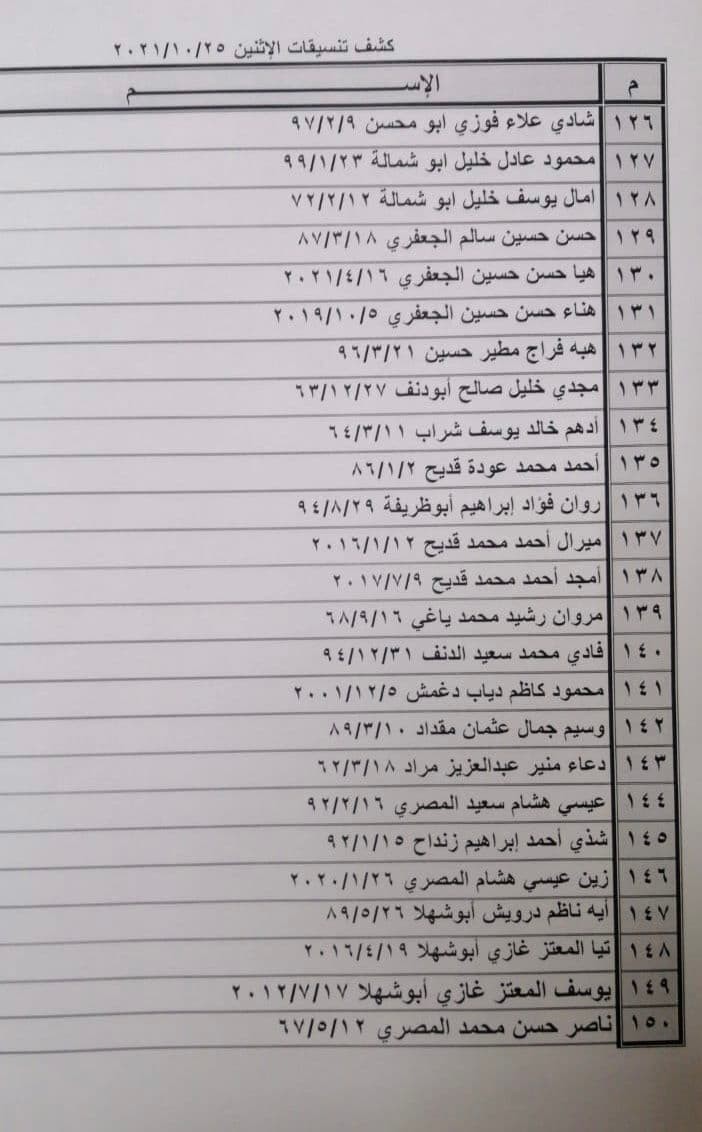 كشف تنسيقات الإثنين ٢٠٢١/١٠/٢٥
م الإســـــــــــــــــــم
١٢٦ شادي علاء فوزي ابو محسن ٩٧/٢/٩
١٢٧ محمود عادل خليل ابو شمالة ٩٩/١/٢٣
١٢٨ امال يوسف خليل ابو شمالة ٧٢/٢/١٢
١٢٩ حسن حسين سالم الجعفري ٨٧/٣/١٨
١٣٠ هيا حسن حسين الجعفري ٢٠٢١/٤/١٦
١٣١ هناء حسن حسين الجعفري ٢٠١٩/١٠/٥
١٣٢ هبه فراج مطير حسين ٩٦/٣/٢١
١٣٣ مجدي خليل صالح أبودنف ٦٣/١٢/٢٧
١٣٤ أدهم خالد يوسف شراب ٦٤/٣/١١
١٣٥ أحمد محمد عودة قديح ٨٦/١/٢
١٣٦ روان فؤاد إبراهيم أبوظريفة ٩٤/٨/٢٩
١٣٧ ميرال أحمد محمد قديح ٢٠١٦/١/١٢
١٣٨ أمجد أحمد محمد قديح ٢٠١٧/٧/٩
١٣٩ مروان رشيد محمد ياغي ٦٨/٩/١٦
١٤٠ فادي محمد سعيد الدنف ٩٤/١٢/٣١
١٤١ محمود كاظم دياب دغمش ٢٠٠١/١٢/٥
١٤٢ وسيم جمال عثمان مقداد ٨٩/٣/١٠
١٤٣ دعاء منير عبدالعزيز مراد ٦٢/٣/١٨
١٤٤ عيسي هشام سعيد المصري ٩٢/٢/١٦
١٤٥ شذي أحمد إبراهيم زنداح ٩٢/١/١٥
١٤٦ زين عيسي هشام المصري ٢٠٢٠/١/٢٦
١٤٧ أيه ناظم درويش أبوشهلا ٨٩/٥/٢٦
١٤٨ تيا المعتز غازي أبوشهلا ٢٠١٦/٤/١٩
١٤٩ يوسف المعتز غازي أبوشهلا ٢٠١٢/٧/١٧
١٥٠ ناصر حسن محمد المصري ٦٧/٥/١٢